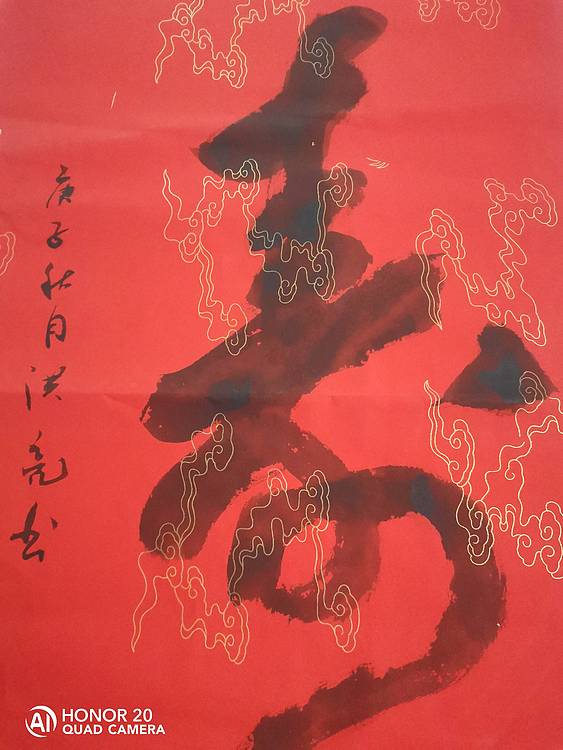 寿
庚子秋月洪亮书
HONOR 20
QUAD CAMERA